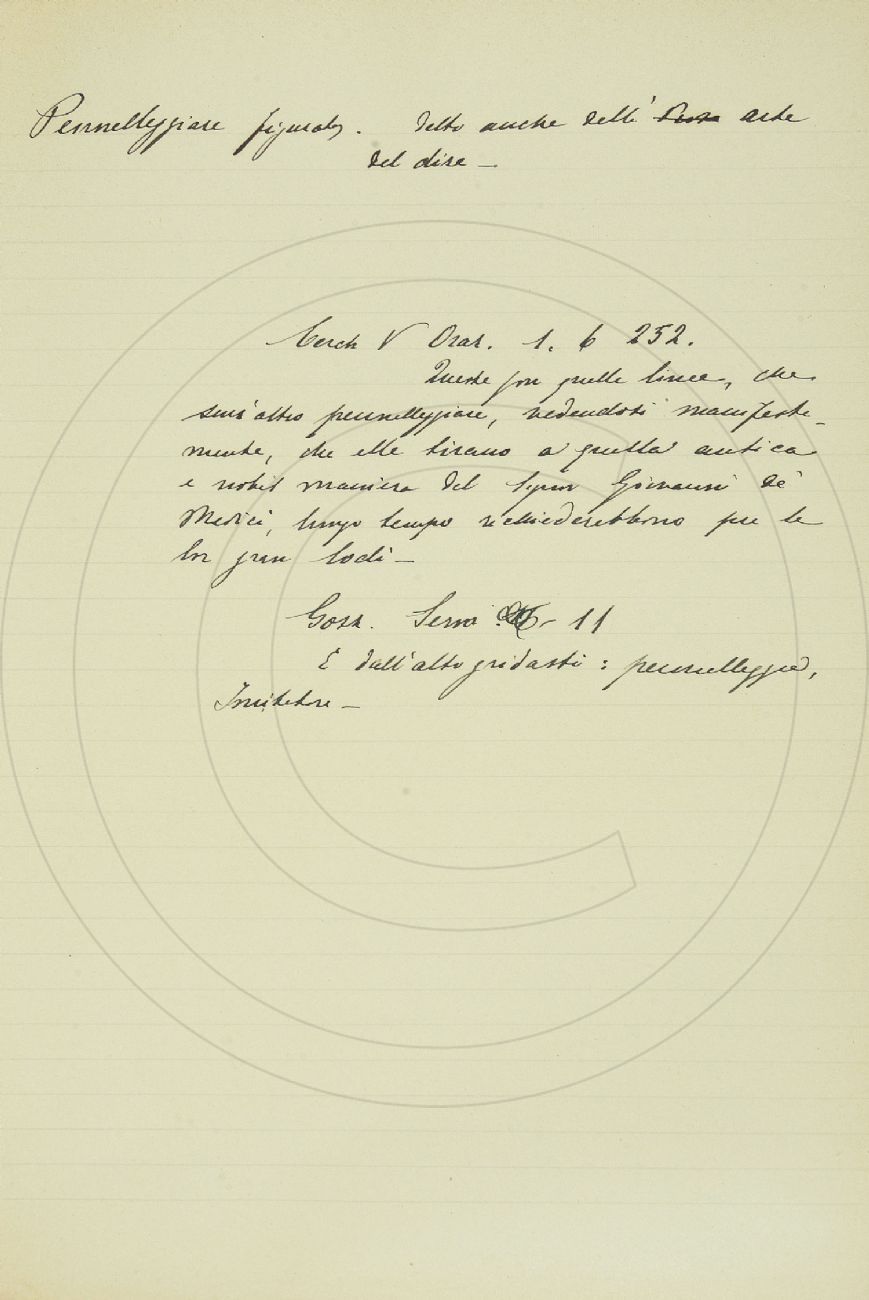 Pennelleggiare figurat. detto anche dell' arte
del dire —
Cerch V Oraz. 1. 6 252.
Queste son quelle linee, che
senz'altro pennelleggiare, vedendosi manifesta-
mente, che elle tirano a quella antica
e nobil maniera del Signor Giovanni de'
Medici, lungo tempo richiederebbono per le
lor gran lodi —
Gozz. Serm. 11
E dall'alto gridasti: pennelleggia,
Imitatore —